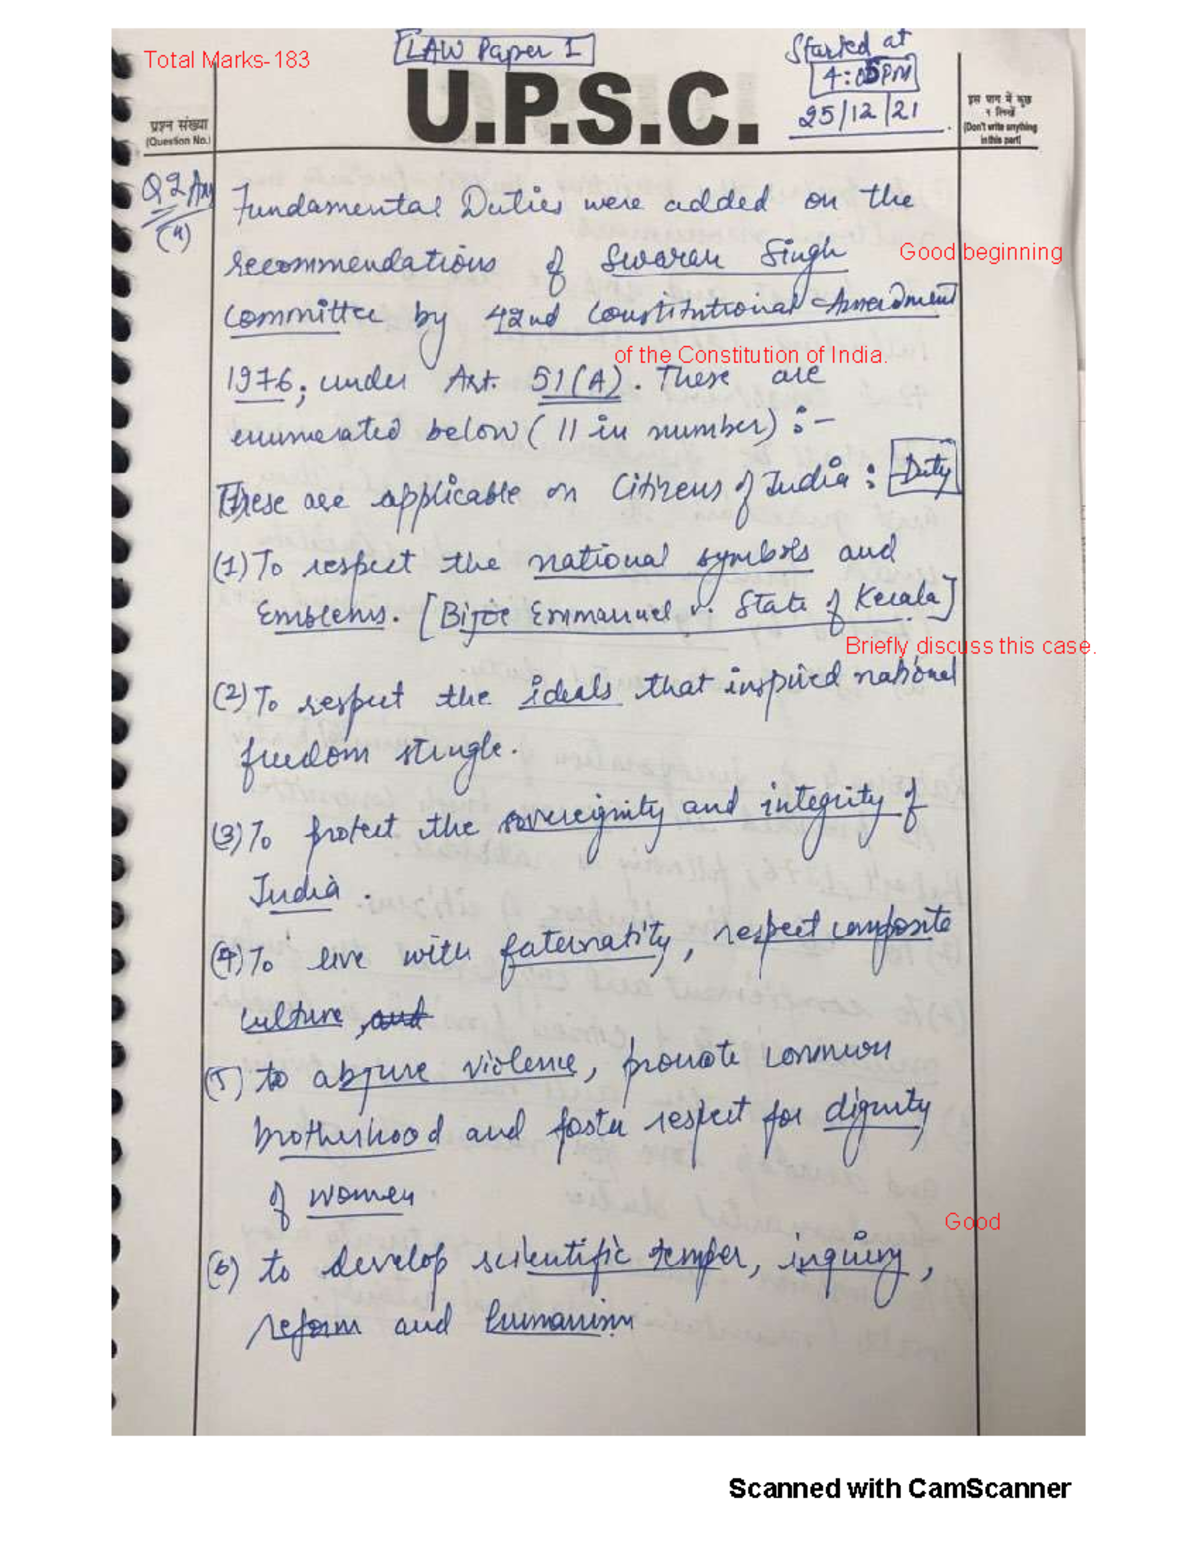 Total Marks-183
LAW Paper I
Started at
4:05PM
25/12/21
U.P.S.C.
प्रश्न संख्या
(Question No.)
इस भाग में कुछ
न लिखें
(Don't write anything
in this part)
Q2 Ans
(a)
Fundamental Duties were added on the
recommendations of Swaran Singh
Good beginning
committee by 42nd Constitutional Amendment
of the Constitution of India.
1976, under Art. 51(A). These are
enumerated below (11 in number) :-
These are applicable on Citizens of India : Duty
(1) To respect the national symbols and
Emblems. [Bijoe Emmanuel v. State of Kerala]
Briefly discuss this case.
(2) To respect the ideals that inspired national
freedom strugle.
(3) To protect the sovereignity and integrity of
India.
(4) To live with faternatity, respect composite
culture, and
(5) to abjure violence, promote common
brotherhood and foster respect for dignity
of women
Good
(6) to develop scientific temper, inquiry,
reform and humanism
Scanned with CamScanner